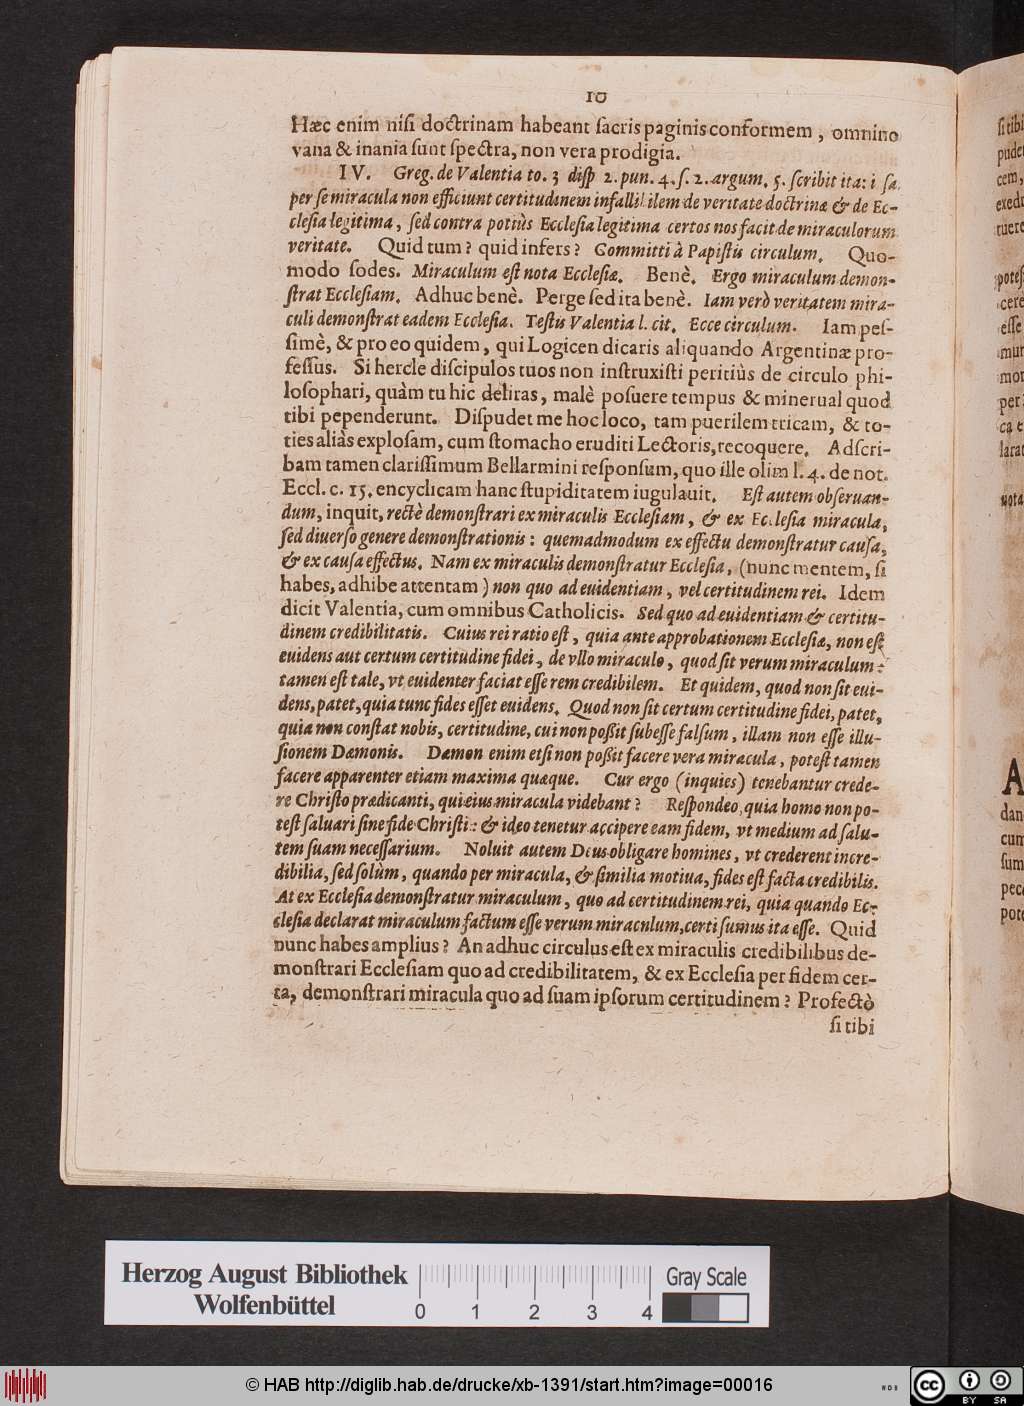 10
Hæc enim niſi doctrinam habeant ſacris paginis conformem, omnino
vana & inania ſunt ſpectra, non vera prodigia.
IV. Greg. de Valentia to. 3 diſp 2. pun. 4. ſ. 2. argum. 5. ſcribit ita:
per ſe miracula non efficiunt certitudinem infallibilem de veritate doctrinæ & de Ec-
cleſia legitima, ſed contra potiùs Eccleſia legitima certos nos facit de miraculorum
veritate. Quid tum? quid infers? Committi à Papiſtis circulum. Quo-
modo ſodes. Miraculum eſt nota Eccleſiæ. Benè. Ergo miraculum demon-
ſtrat Eccleſiam. Adhuc benè. Perge ſed ita benè. Iam verò veritatem mira-
culi demonſtrat eadem Eccleſia. Teſtis Valentia l. cit. Ecce circulum. Iam peſ-
ſimè, & pro eo quidem, qui Logicen dicaris aliquando Argentinæ pro-
feſſus. Si hercle diſcipulos tuos non inſtruxiſti peritiùs de circulo phi-
loſophari, quàm tu hic deliras, malè poſuere tempus & minerual quod
tibi pependerunt. Diſpudet me hoc loco, tam puerilem tricam, & to-
ties aliàs exploſam, cum ſtomacho eruditi Lectoris, recoquere. Adſcri-
bam tamen clariſſimum Bellarmini reſponſum, quo ille olim l. 4. de not.
Eccl. c. 15. encyclicam hanc ſtupiditatem iugulauit. Eſt autem obſeruan-
dum, inquit, rectè demonſtrari ex miraculis Eccleſiam, & ex Eccleſia miracula,
ſed diuerſo genere demonſtrationis: quemadmodum ex effectu demonſtratur cauſa,
& ex cauſa effectus. Nam ex miraculis demonſtratur Eccleſia, (nunc mentem, ſi
habes, adhibe attentam) non quo ad euidentiam, vel certitudinem rei. Idem
dicit Valentia, cum omnibus Catholicis. Sed quo ad euidentiam & certitu-
dinem credibilitatis. Cuius rei ratio eſt, quia ante approbationem Eccleſiæ, non eſt
euidens aut certum certitudine fidei, de vllo miraculo, quod ſit verum miraculum:
tamen eſt tale, vt euidenter faciat eſſe rem credibilem. Et quidem, quod non ſit eui-
dens, patet, quia tunc fides eſſet euidens. Quod non ſit certum certitudine fidei, patet,
quia non conſtat nobis, certitudine, cui non poßit ſubeſſe falſum, illam non eſſe illu-
ſionem Dæmonis. Dæmon enim etſi non poßit facere vera miracula, poteſt tamen
facere apparenter etiam maxima quæque. Cur ergo (inquies) tenebantur crede-
re Chriſto prædicanti, qui eius miracula videbant? Reſpondeo, quia homo non po-
teſt ſaluari ſine fide Chriſti: & ideo tenetur accipere eam fidem, vt medium ad ſalu-
tem ſuam neceſſarium. Noluit autem Deus obligare homines, vt crederent incre-
dibilia, ſed ſolùm, quando per miracula, & ſimilia motiua, fides eſt facta credibilis.
At ex Eccleſia demonſtratur miraculum, quo ad certitudinem rei, quia quando Ec-
cleſia declarat miraculum factum eſſe verum miraculum, certi ſumus ita eſſe. Quid
nunc habes amplius? An adhuc circulus eſt ex miraculis credibilibus de-
monſtrari Eccleſiam quo ad credibilitatem, & ex Eccleſia per fidem cer-
ta, demonſtrari miracula quo ad ſuam ipſorum certitudinem? Profectò
ſi tibi
Herzog August Bibliothek
Wolfenbüttel
0 1 2 3 4
Gray Scale
© HAB http://diglib.hab.de/drucke/xb-1391/start.htm?image=00016
cc BY SA